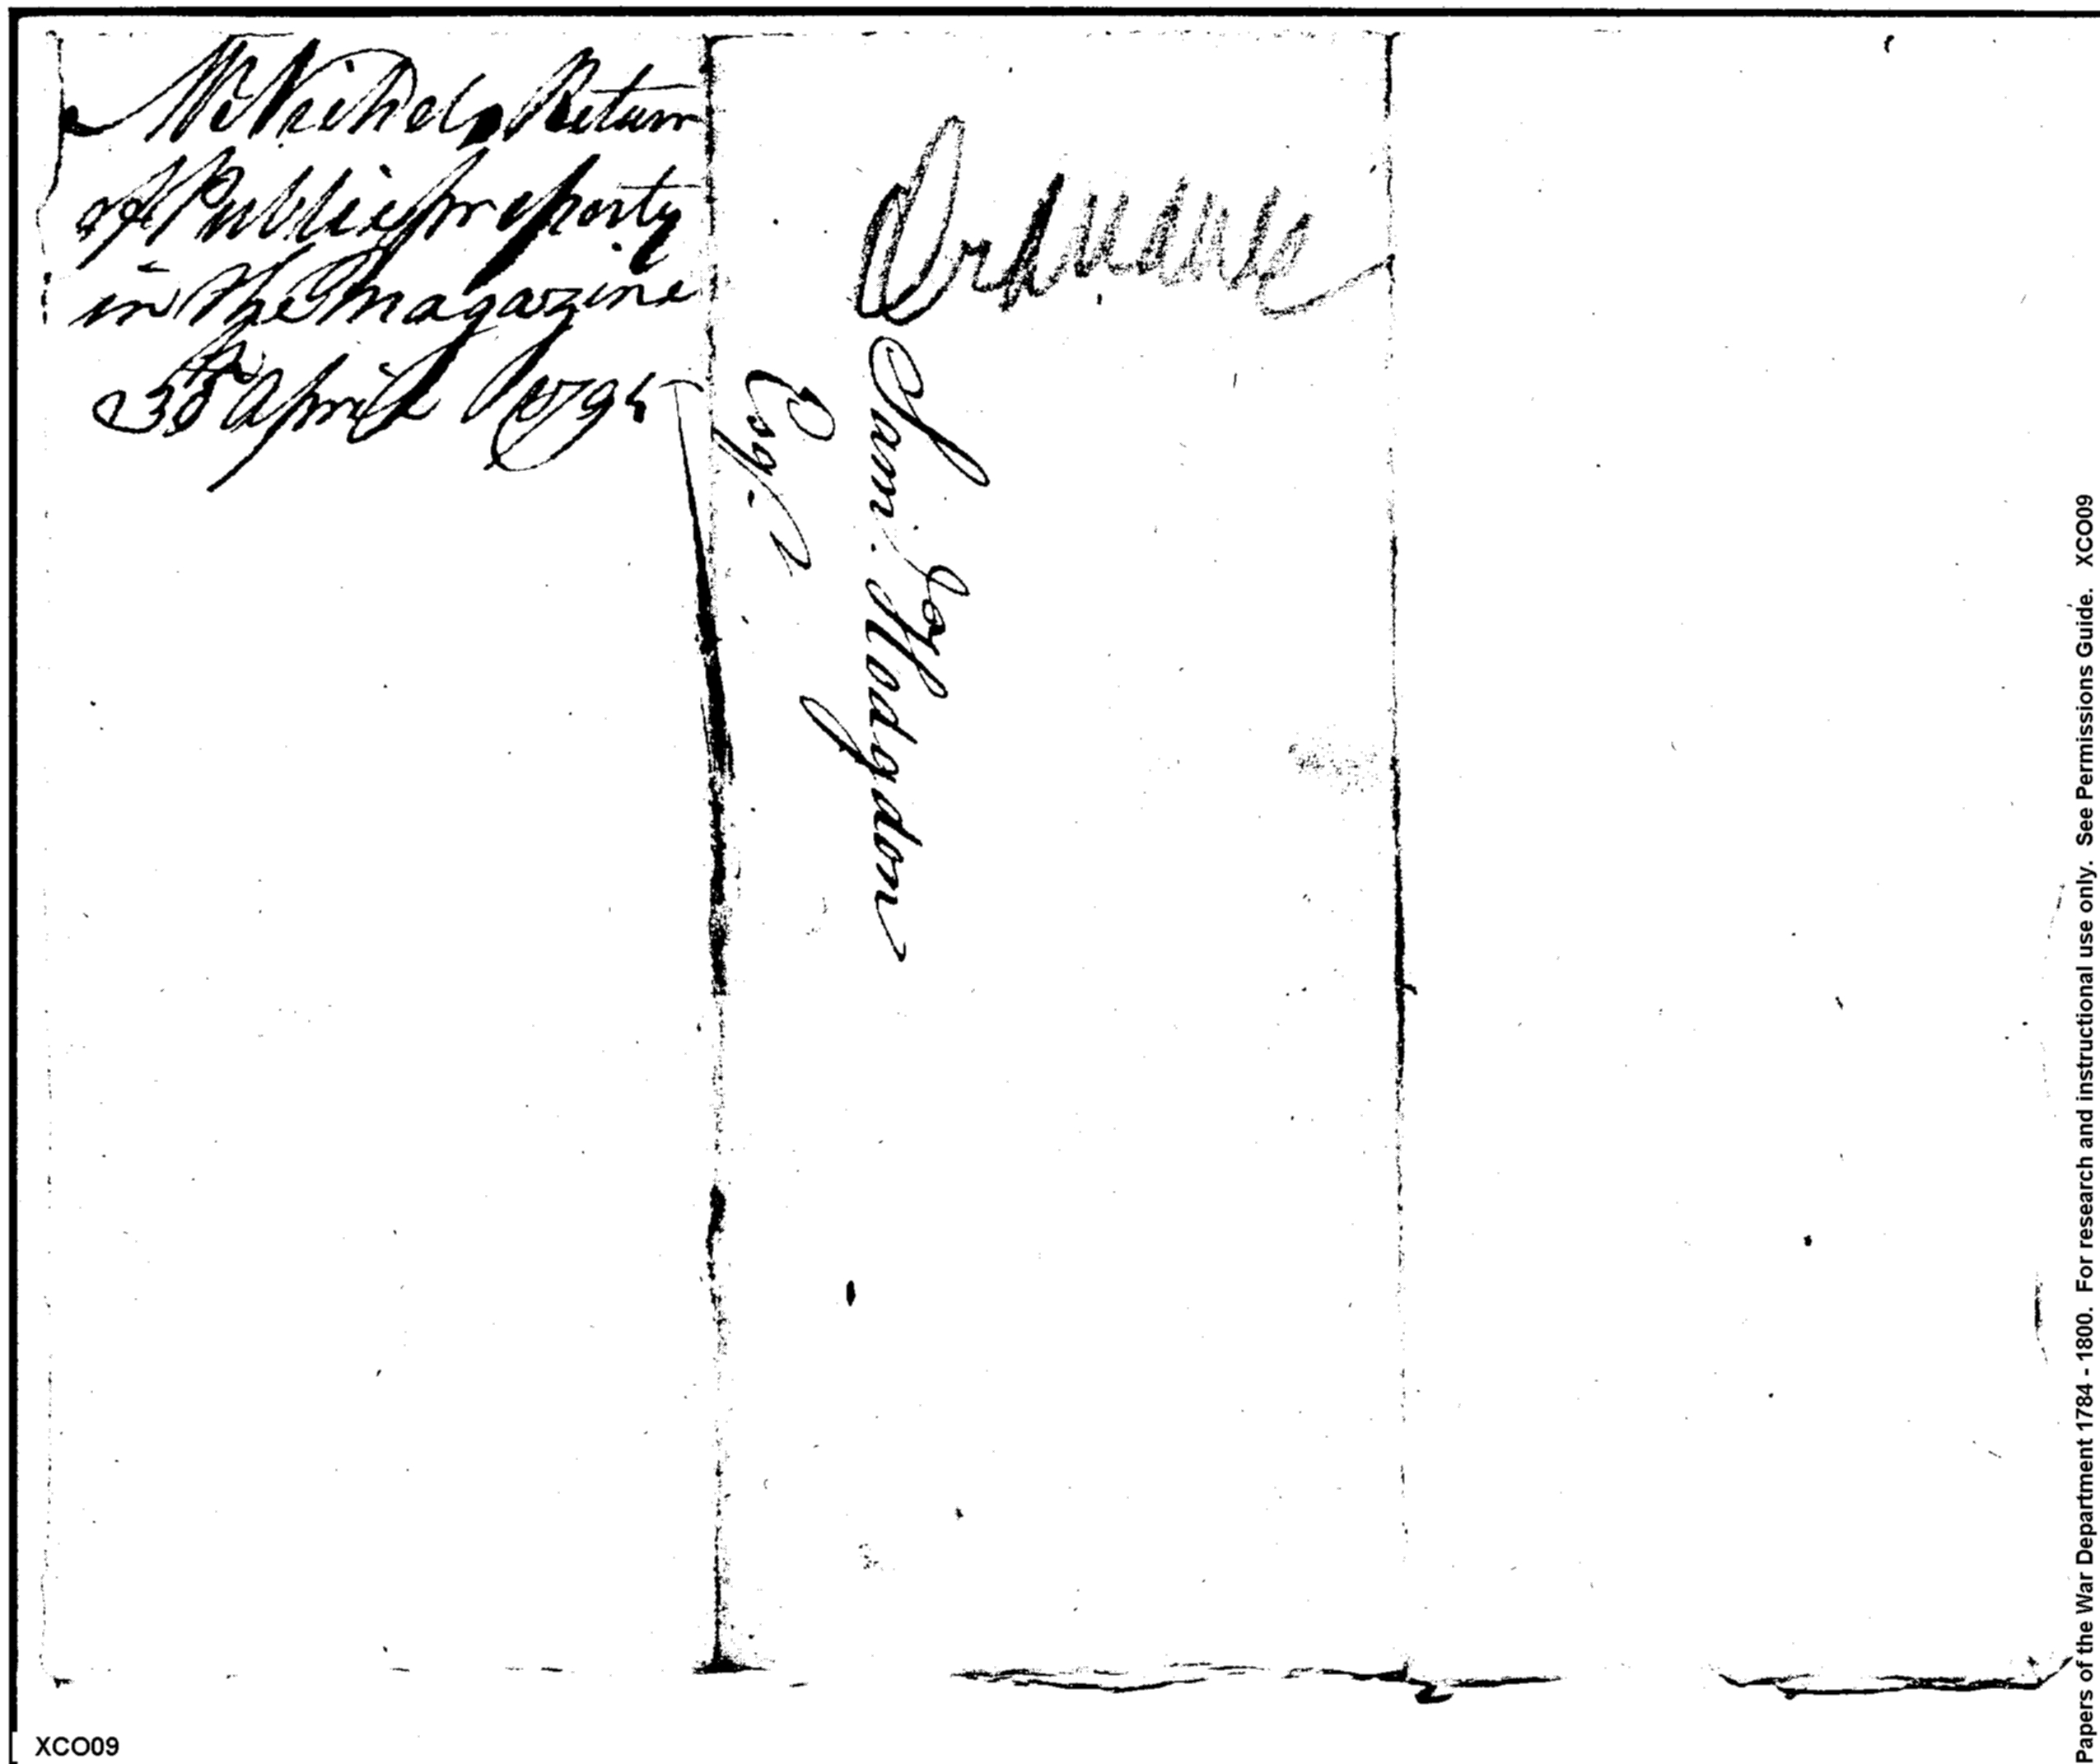 Mr Nichols Return
of Public property
in the Magazine
April 1795
Ordnance
Saml. Hodgdon
Esqr.
XCO09
Papers of the War Department 1784 - 1800. For research and instructional use only. See Permissions Guide. XCO09